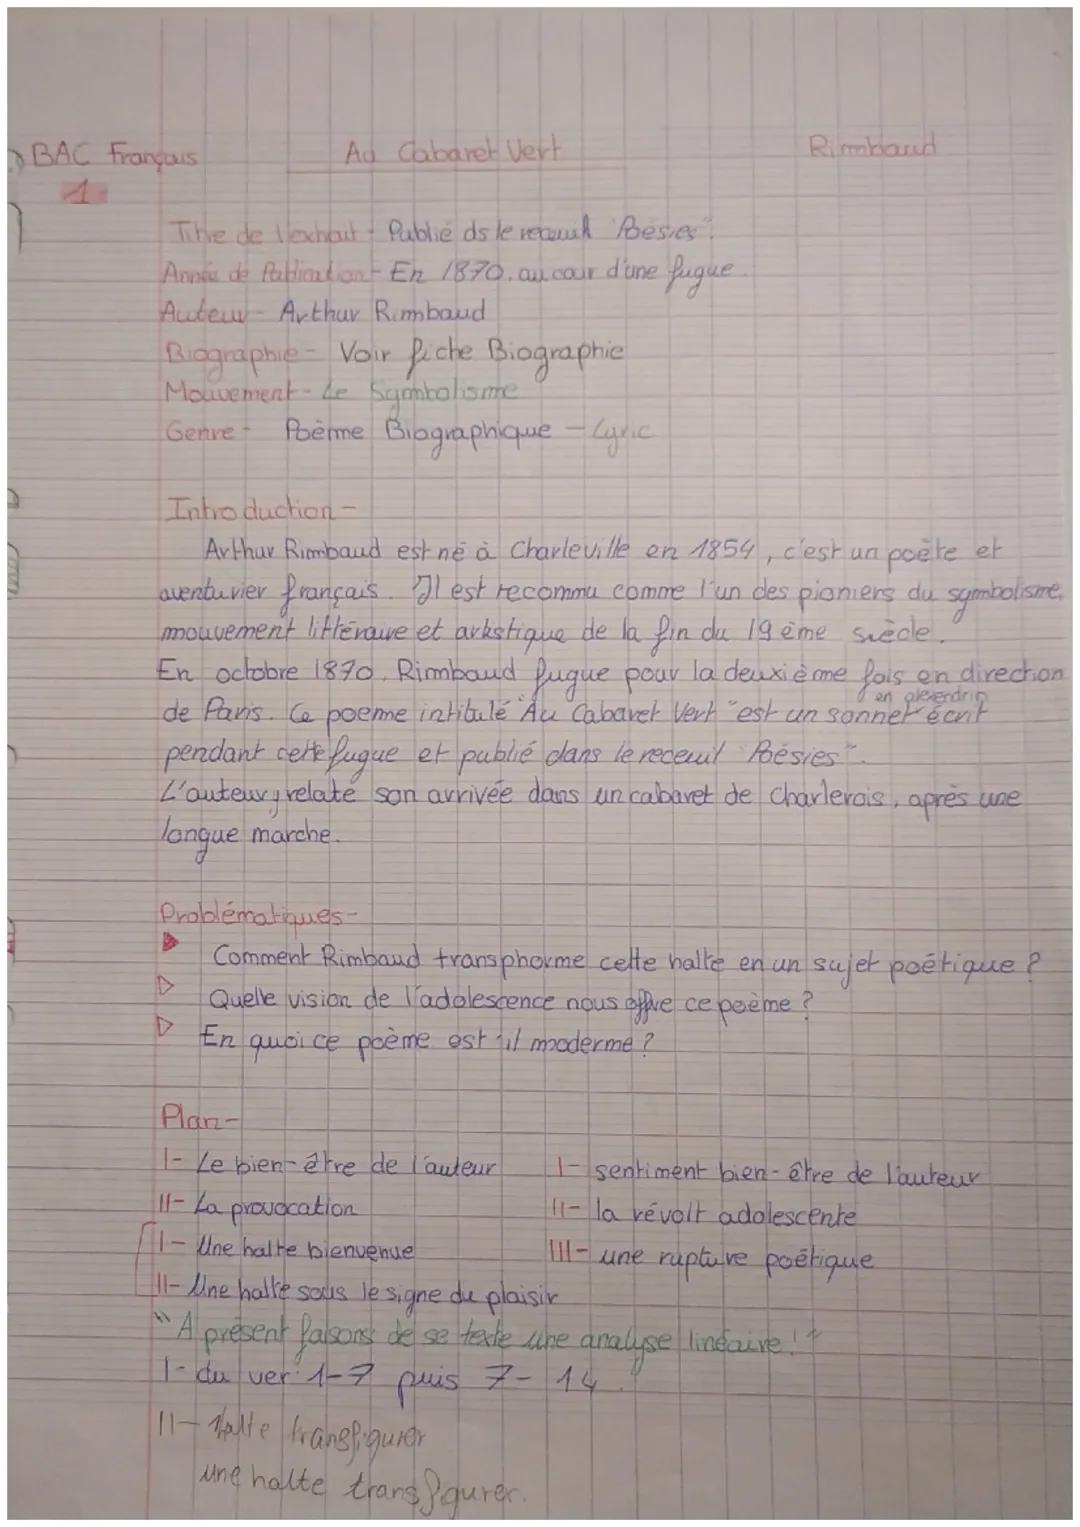 BAC Français Au Cabaret Vert Rimbaud
1
Titre de l'extrait - Publié ds le receuil "Poésies".
Année de Publication - En 1870. au cour d'une fugue.
Auteur - Arthur Rimbaud
Biographie - Voir fiche Biographie
Mouvement - Le Symbolisme
Genre - Poème Biographique - Lyric
Introduction -
Arthur Rimbaud est né à Charleville en 1854, c'est un poète et
aventurier français. Il est reconnu comme l'un des pioniers du symbolisme,
mouvement littéraire et artistique de la fin du 19 ème siècle.
En octobre 1870, Rimbaud fugue pour la deuxième fois en direction
en alexendrin
de Paris. Ce poeme intitulé "Au Cabaret Vert" est un sonnet écrit
pendant cette fugue et publié dans le receuil "Poésies".
L'auteur y relate son arrivée dans un cabaret de Charlerois, après une
longue marche.
Problématiques -
Comment Rimbaud transphorme cette halte en un sujet poétique ?
Quelle vision de l'adolescence nous offre ce poème ?
En quoi ce poème est il moderne ?
Plan -
I- Le bien-être de l'auteur I- sentiment bien-être de l'auteur
II- La provocation II- la révolt adolescente
I- Une halte bienvenue III- une rupture poétique
II- Une halte sous le signe du plaisir
"A présent faisons de se texte une analyse linéaire !"
I- du ver 1-7 puis 7-14.
II- Halte transfigurer
une halte transfigurer.